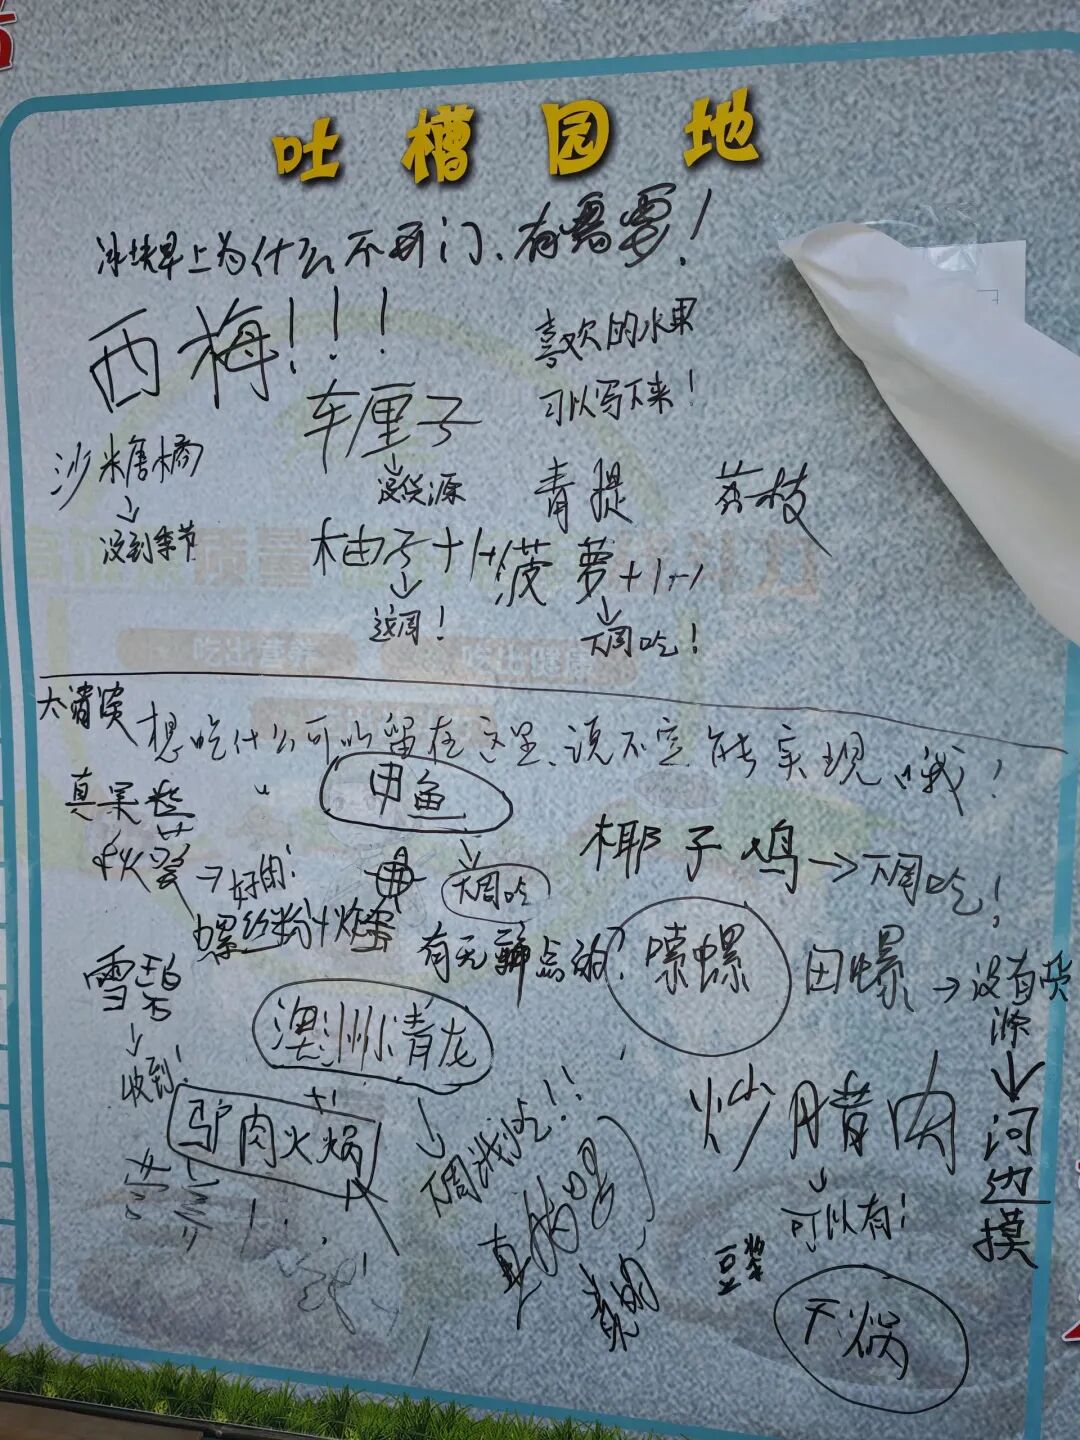 吐槽园地
冰块早上为什么不开门、有需要！
西梅！！！
喜欢的水果
可以写下来！
车厘子
沙糖橘
没货源
青提
荔枝
没到季节
柚子+1+1
菠萝+1+1
这周！
下周吃！
想吃什么可以留在这里、说不定能实现哦！
甲鱼
真果
秋葵
→好的！
下周吃
椰子鸡→下周吃！
螺丝粉+炸蛋
有无
点的？
嗦螺
田螺→没有货源
河边摸
雪碧
收到！
澳洲青龙
+1
驴肉火锅
炒腊肉
可以有！
豆浆
干锅